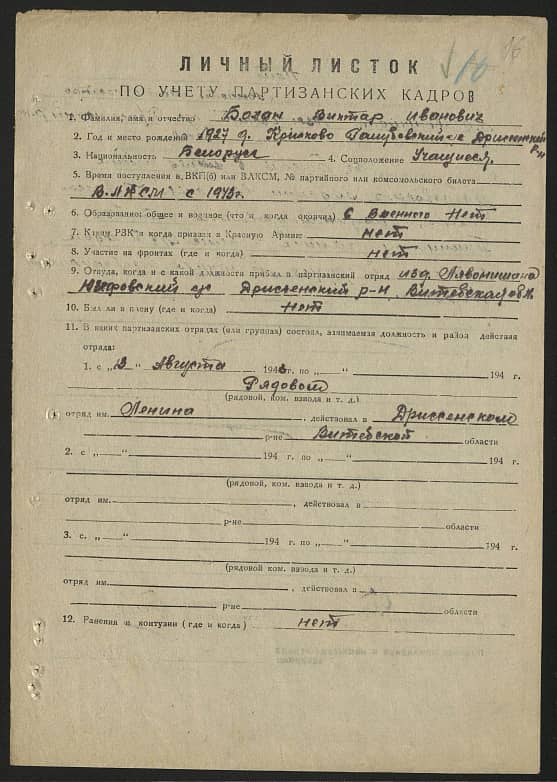 16
10
ЛИЧНЫЙ ЛИСТОК
ПО УЧЕТУ ПАРТИЗАНСКИХ КАДРОВ
1. Фамилия, имя и отчество Боган Виктар Иванович
2. Год и место рождения 1927 г. Дриссенский
р-н
3. Национальность Беларус 4. Соцположение Учащиеся
5. Время поступления в ВКП(б) или ВЛКСМ, № партийного или комсомольского билета
ВЛКСМ с
6. Образование общее и военное (что и когда окончил) 6 военного Нет
7. Каким РЗК и когда призван в Красную Армию нет
8. Участие на фронтах (где и когда) нет
9. Откуда, когда и с какой должности прибыл в партизанский отряд
с/с Дриссенский р-н Витебская обл.
10. Был ли в плену (где и когда) нет
11. В каких партизанских отрядах (или группах) состоял, занимаемая должность и район действия
отряда:
1. с „ “ Августа 1943 г. по „ “ 194 г.
Рядовой
(рядовой, ком. взвода и т. д.)
отряд им. Ленина, действовал в Дриссенском
р-не Витебской области
2. с „ “ 194 г. по „ “ 194 г.
(рядовой, ком. взвода и т. д.)
отряд им. , действовал в
р-не области
3. с. „ “ 194 г. по „ “ 194 г.
(рядовой ком. взвода и т. д.)
отряд им. , действовал в
р-не области
12. Ранения и контузии (где и когда) нет